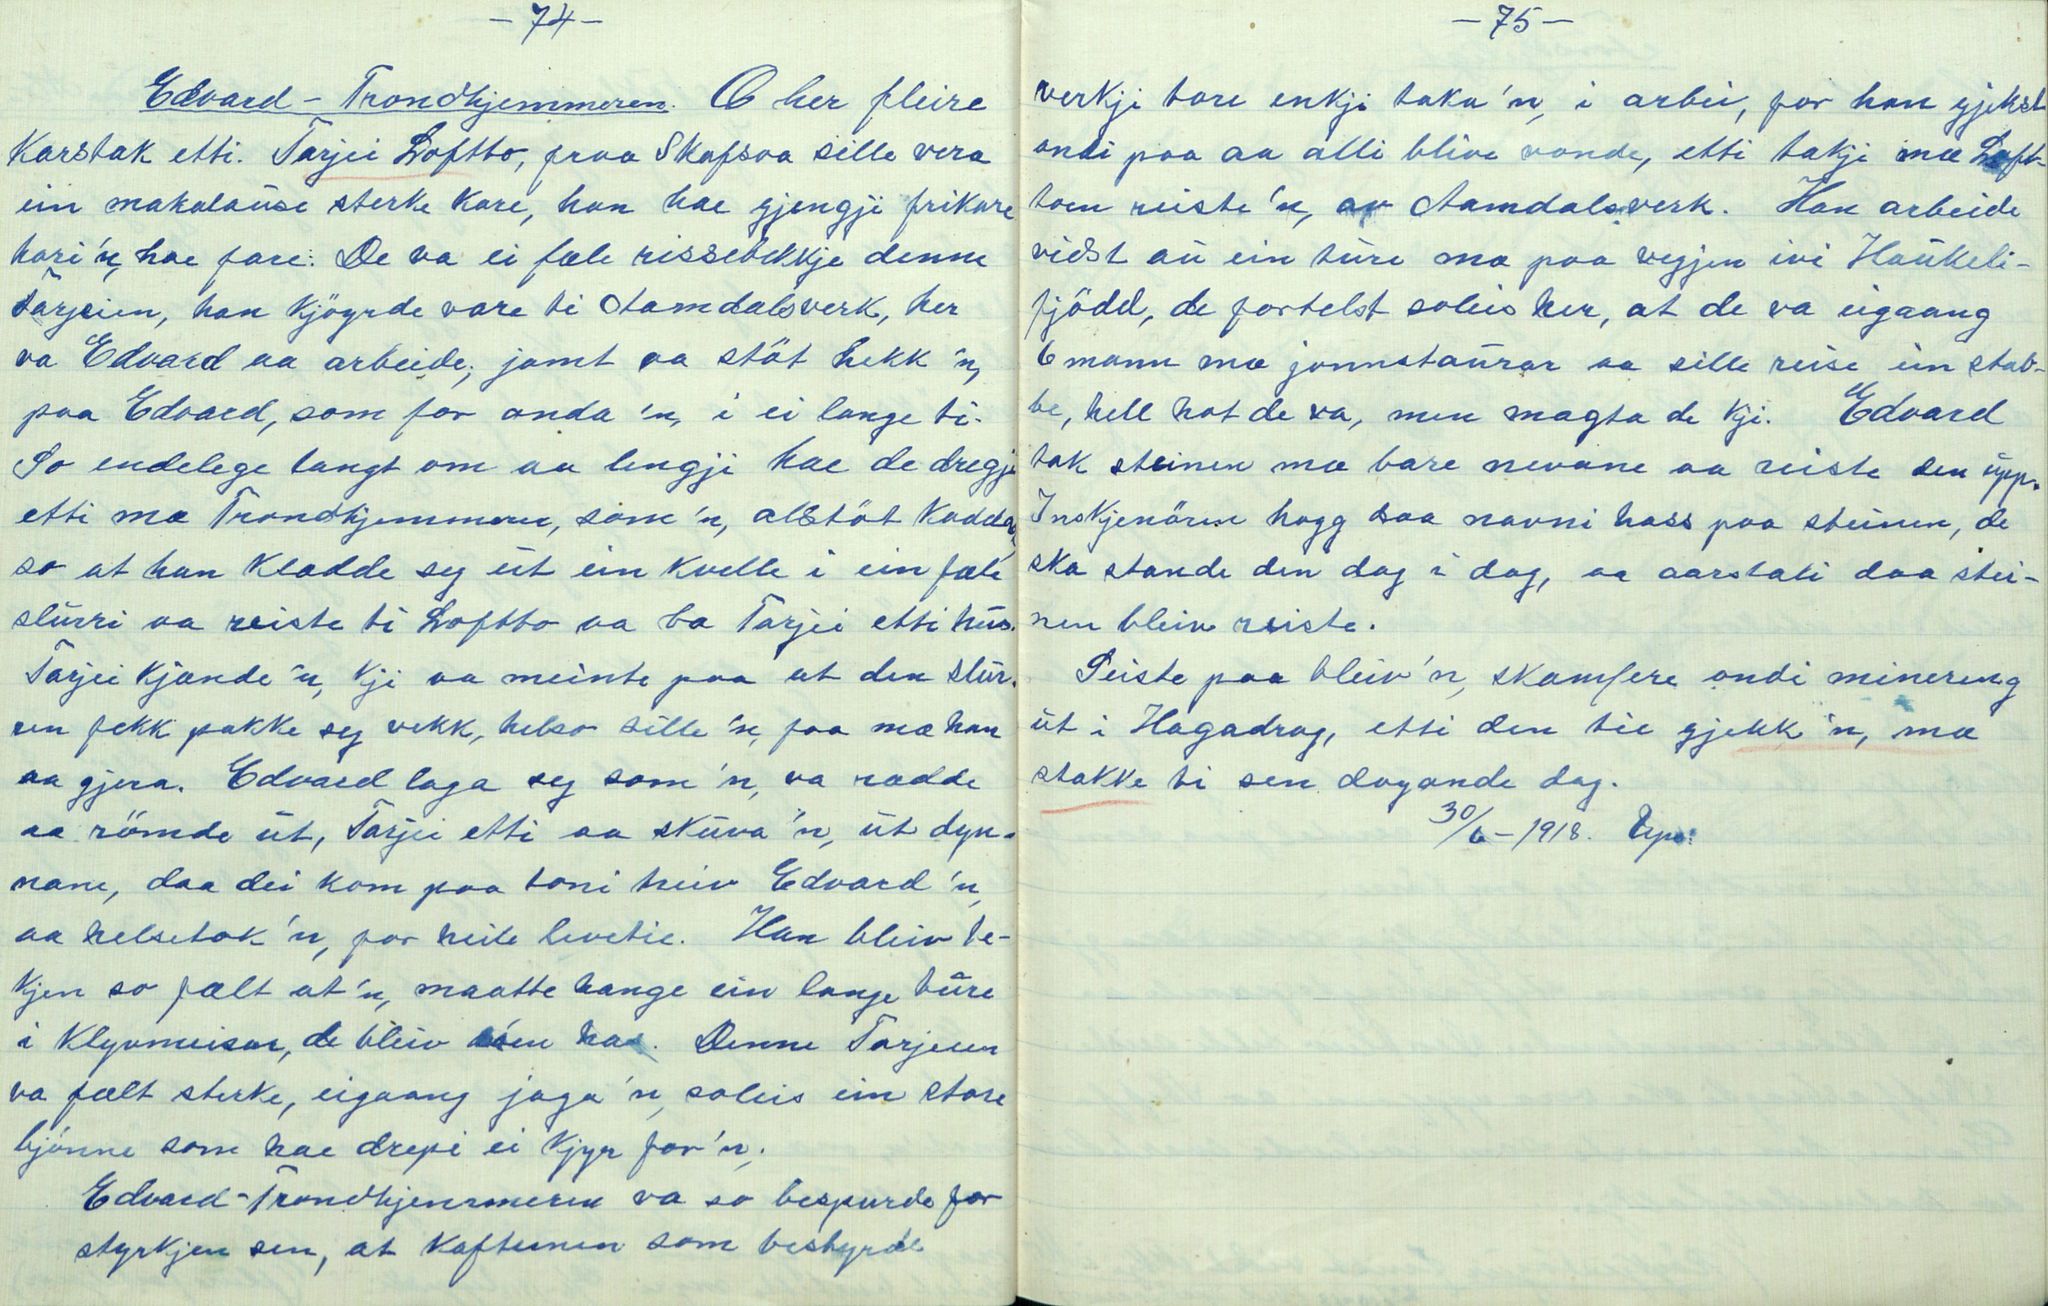 - 74 -
Edvard - Trondhjemmeren. O her fleire
karstak etti. Tarjei Loftto, fraa Skafsaa sille vera
ein makalause sterke kare, han hae gjengji frikare
hari'n, hae fare. De va ei fæle rissebikkje denne
Tarjeien, han kjöyrde vare ti Aamdalsverk, her
va Edvard aa arbeide, jamt va stöt hekk'n,
paa Edvard, som for anda'n, i ei lange ti.
So endelege langt om aa lengji hae de dregje
etti mæ Trondhjemmeren, som'n, alstöt kadda,
so at han kladde seg ut ein kvelle i ein fæle
slurri aa reiste ti Loftto aa ba Tarjei etti hus.
Tarjei kjande'n, kji aa meinte paa at den slur-
ren fekk pakke seg vekk, helso sille'n, faa mæ han
aa gjera. Edvard laga seg som'n, va radde
aa römde ut, Tarjei etti aa skuva'n, ut dyn-
nane, daa dei kom paa toni heiv Edvard'n,
aa helsetok'n, for heile levetie. Han bleiv te-
kjen so fælt at'n, maatte hange ein lange ture
i klyvmeisen, de bleiv sien has. Denne Tarjeien
va fælt sterke, eigaang jaga'n, soleis ein store
bjönne som hae drepi ei kjyr for'n.
Edvard-Trondhjemmeren va so bespurde for
styrkjen sen, at kafteinen som bestyrde
- 75 -
verkji tore enkji taka'n, i arbei, for han gjekst
andi paa aa alli blive vonde, etti takji mæ Loft-
toen reiste'n, av Aamdalsverk. Han arbeide
vidst au ein ture mæ paa vegjen ivi Haukeli-
fjödd, de fortelst soleis her, at de va eigaang
6 mann mæ jonnstaurar aa sille reise ein stab-
be, hell hot de va, men magta de kji. Edvard
tak steinen mæ bare nevane aa reiste den upp.
Inskjenören hogg daa navni hass paa steinen, de
ska stande den dag i dag, aa aarstali daa stei-
nen bleiv reiste.
Seiste paa bleiv'n, skamfere ondi minering
ut i Hagadrag, etti den tie gjekk'n, mæ
stakke ti sen doyande dag.
30/6-1918.